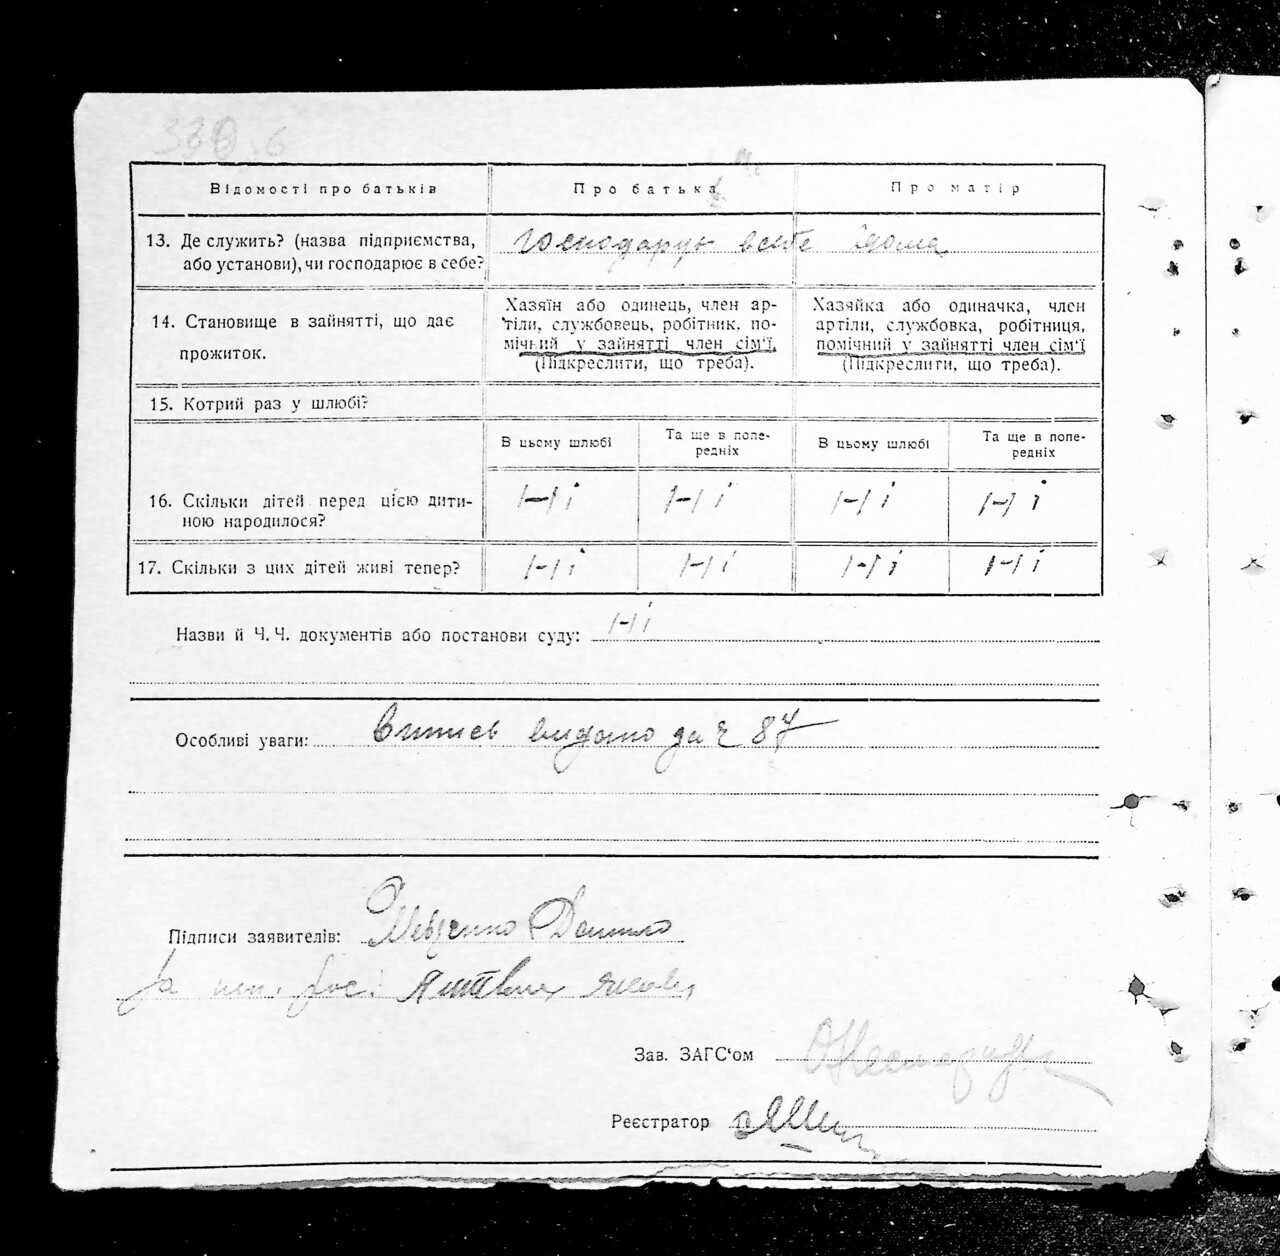 Відомості про батьків
Про батька
Про матір
13. Де служить? (назва підприємства,
або установи), чи господарює в себе?
Господарує в себе вдома
14. Становище в зайнятті, що дає
прожиток.
Хазяїн або одинець, член ар-
тіли, службовець, робітник, по-
мічний у зайнятті член сім'ї,
(Підкреслити, що треба).
Хазяйка або одиначка, член
артіли, службовка, робітниця,
помічний у зайнятті член сім'ї
(Підкреслити, що треба).
15. Котрий раз у шлюбі?
В цьому шлюбі
Та ще в попе-
редніх
В цьому шлюбі
Та ще в попе-
редніх
16. Скільки дітей перед цією дити-
ною народилося?
Ні Ні Ні Ні
17. Скільки з цих дітей живі тепер?
Ні Ні Ні Ні
Назви й Ч. Ч. документів або постанови суду: Ні
Особливі уваги: Випись видано за ч 87
Підписи заявителів: Данило
За
Зав. ЗАГС'ом
Реєстратор